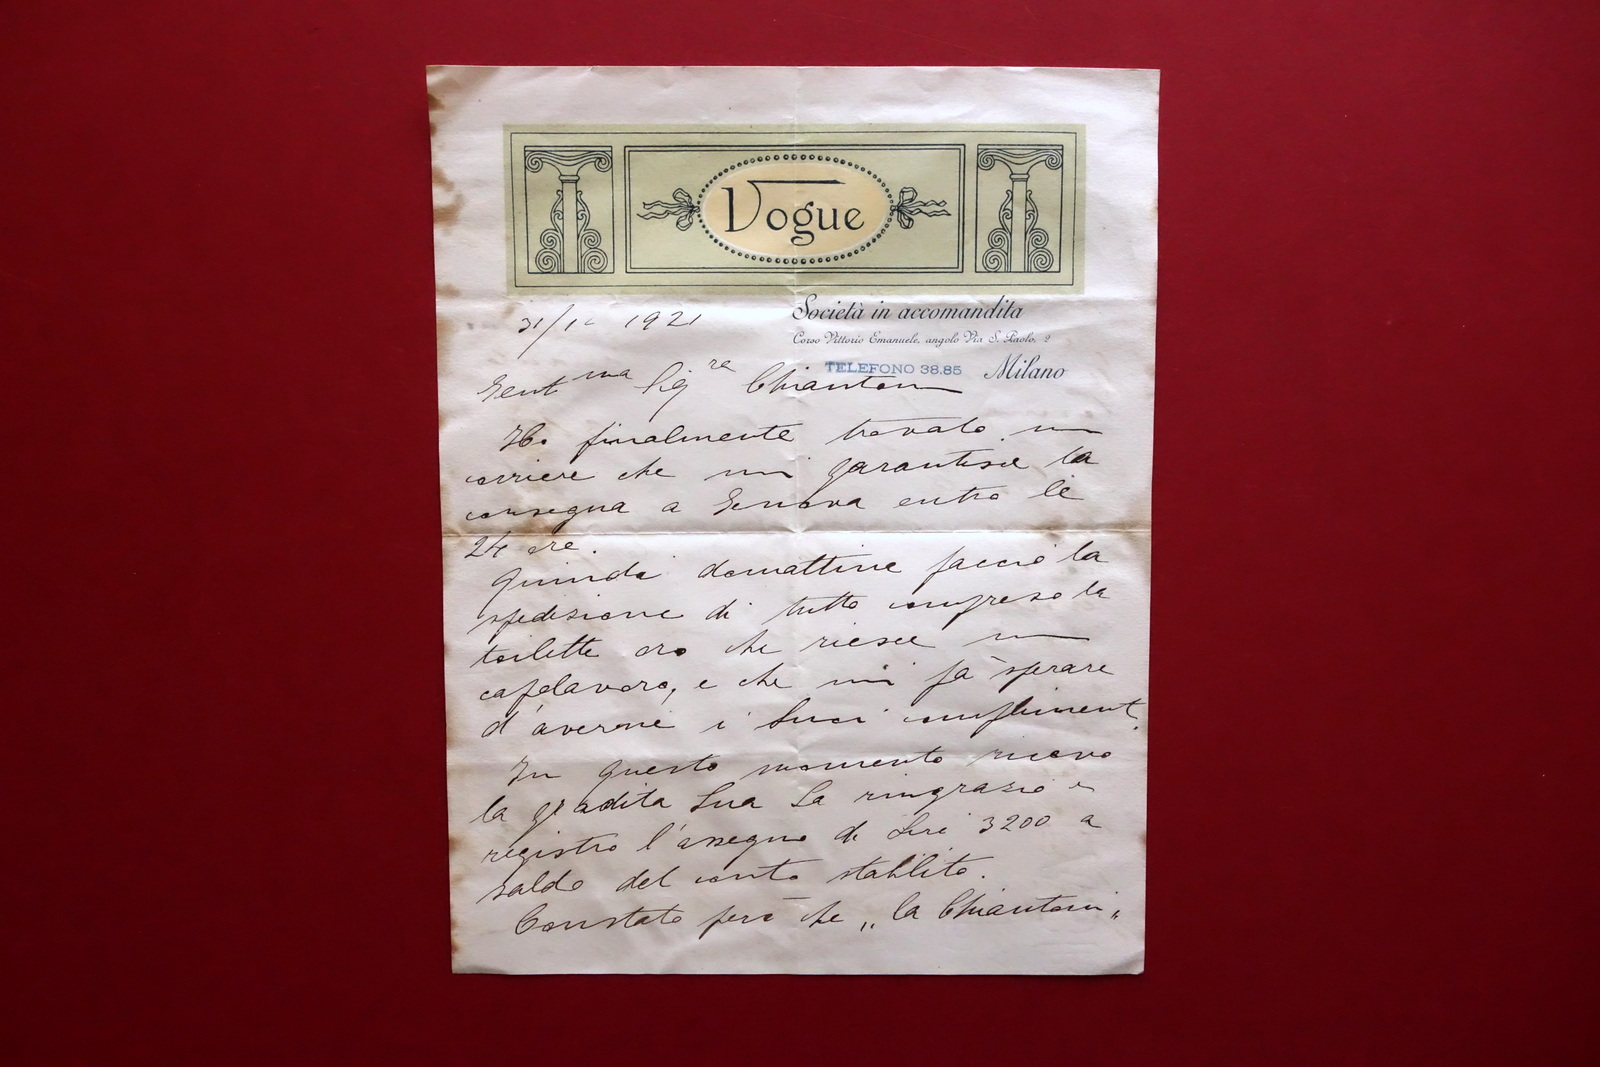 Vogue
Società in accomandita
Corso Vittorio Emanuele, angolo Via S. Paolo, 2
TELEFONO 38.85 Milano
1921
Gent ma Sig ra Chiantoni
Ho finalmente trovato un
corriere che mi garantisce la
consegna a Genova entro le
24 ore.
Quindi domattina faccio la
spedizione di tutto compreso la
toilette oro che riesce un
capolavoro, e che mi fà sperare
d'averne i Suoi complimenti.
In questo momento ricevo
la gradita Sua La ringrazio e
registro l'assegno di Lire 3200 a
saldo del conto stabilito.
Constato però che „la Chiantoni„